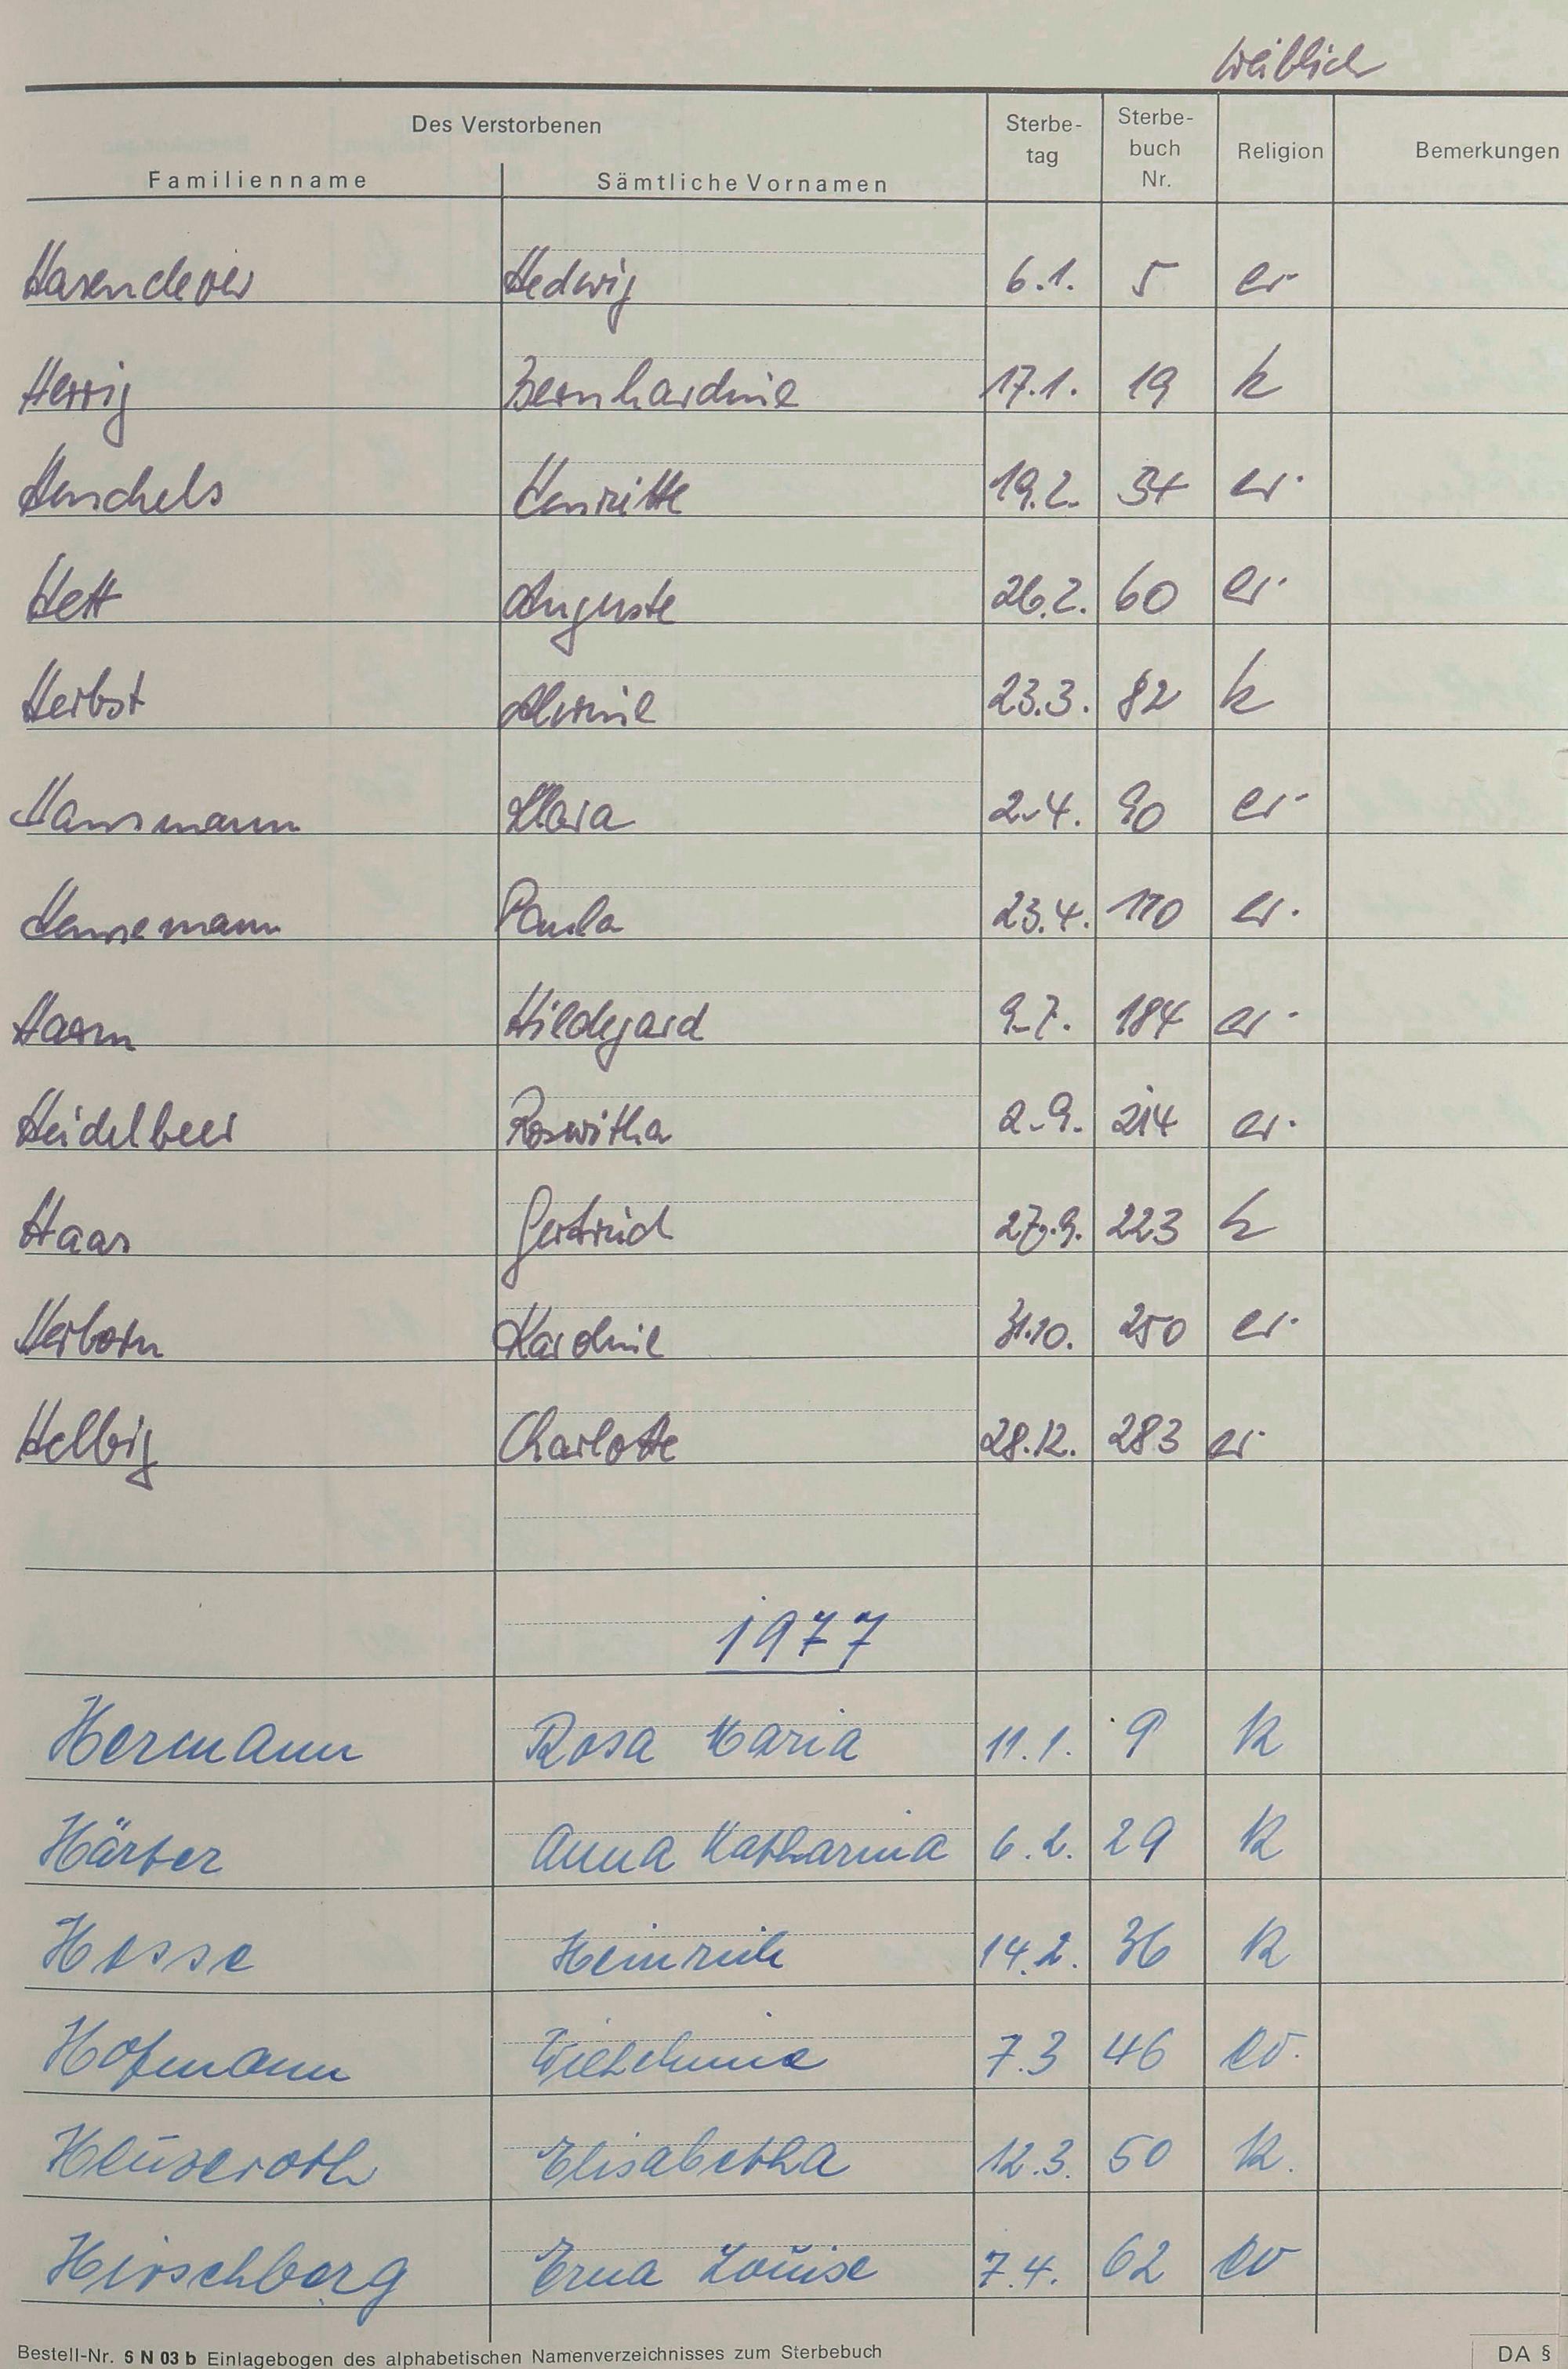 weiblich
Des Verstorbenen
Familienname Sämtliche Vornamen Sterbe-tag Sterbe-buch Nr. Religion Bemerkungen
Hasenclever Hedwig 6.1. 5 ev
Herrig Bernhardine 17.1. 19 k
Henschels Henriette 19.2. 54 ev.
Hett Auguste 26.2. 60 ev.
Herbst Alwine 23.3. 82 k
Hansmann Klara 2.4. 90 ev.
Hennemann Paula 23.4. 110 ev.
Hildegard 9.7. 184 ev.
Heidelbeer Roswitha 2.9. 214 ev.
Haas Gertrud 27.9. 223 k
Herborn Karoline 31.10. 250 ev.
Helbig Charlotte 28.12. 283 ev.
1977
Hermann Rosa Maria 11.1. 9 k
Härter Anna Katharina 6.2. 29 k
Hesse Heinrich 14.2. 36 k
Hofmann Wilhelmine 7.3 46 ev.
Heuseroth Elisabetha 12.3. 50 k.
Hirschberg Erna Louise 7.4. 62 ev
Bestell-Nr. 5 N 03 b Einlagebogen des alphabetischen Namenverzeichnisses zum Sterbebuch DA §